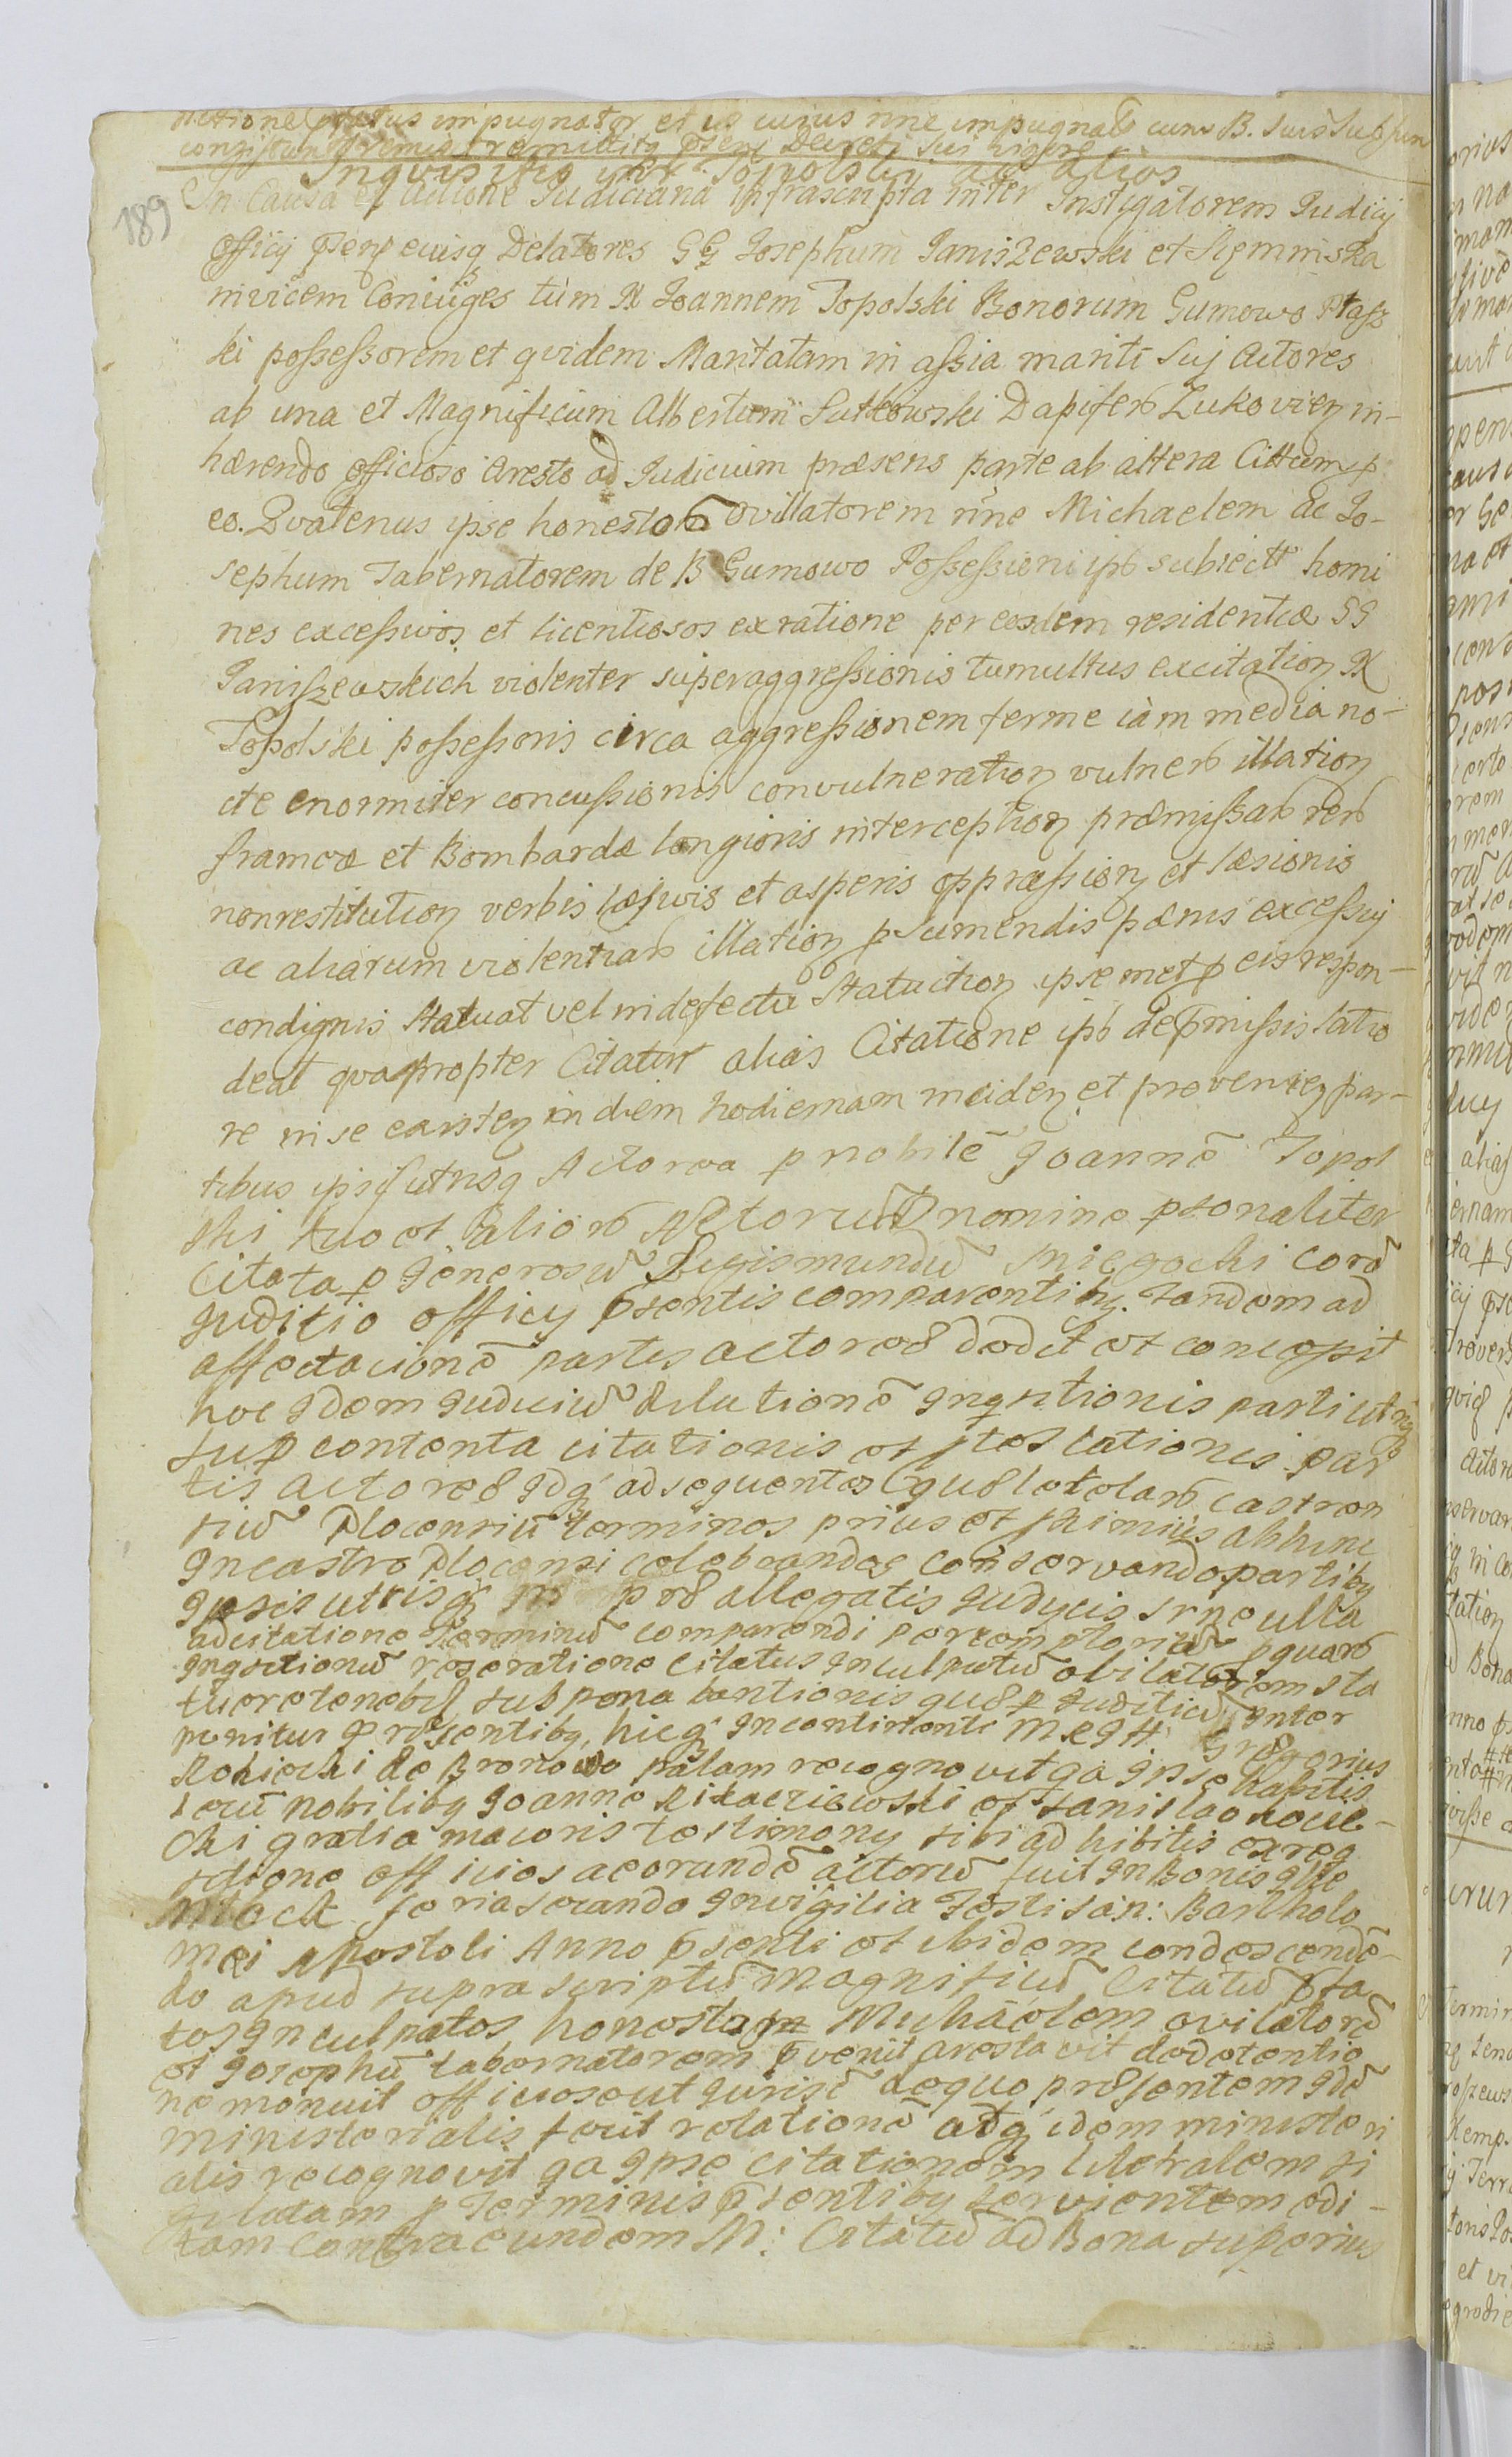 dictione citatus impugnator et is cuius nne impugnatr cum B. suis subsun
consistunt premia remittitq pseny Decreti sui vigore
Inquisitio inter Topolski ac alios
189
In Causa et Actione Judiciaria infrascripta inter Instigatorem Judicij
Officij pseny eiusq Delatores GG Josephum Janiszewski et Slemminska
invicem Coniuges tum N Joannem Topolski Bonorum Gumowo Ptasz
ki possessorem et qvidem Maritatam in assia mariti sui Actores
ab una et Magnificum Albertum Sutkowski Dapiferō Zukovien in-
hærendo officioso Aresto ad Judicium præsens parte ab altera Cittum p
eo. Qvatenus ipse honestos ovillatorem nne Michaelem ac Jo-
sephum Tabernatorem de B Gumowo Possessioni ipō subiectt homi
nes excessivos et licentiosos ex ratione per eosdem residentiæ GG
Janiszewskich violenter superaggressionis tumultus excitation N
Topolski possessoris circa aggressionem ferme iam media no-
cte enormiter concussionis convulneration vulnerō illation
frameæ et Bombardæ longioris interception præmissarō rerō
nonrestitution verbis læsivis et asperis oppression et læsionis
ac aliarum violentiarō illation p sumendis pænis excessuj
condignis statuat vel in defectu statuition ipsemet p eis respon-
deat qvapropter Citatur alias Citatione ipō de præmissis latio
re in se earsten in diem hodiernam inciden et provenien par-
tibus ipsis utrisq Actorea p nobilē Joannē Topol
ski suo et aliorō Actorum nomine psonaliter
Citata p Generosū Sigismundū Sniegocki corā
Juditio officij psentis comparentibq. Tandem ad
affectationē partis actoreæ dedit et concessit
hoc idem Judiciū dilationē inqsitionis parti utriq
sup contenta citationis et ptestationis par
tis actoreæ idq ad sequentes quæletelarō castren
siū Plocensiū terminos prius et primius abhinc
in castro Plocensi celebrandos conservando partibq
ipsis utrisq in præ allegatis Judycis sine ulla
adcitatione Terminū comparendi peremptoriū p quarō
inqsitionū reseratione citatus inculpatū ovilatorem sta
tuere tenebit sub pœna bantionis quæ p Juditiū inter
ponitur præsentibq, hicq in continenti M. Gregorius
Rokicki de Bronowo palam recognovit qa ipse habitis
secū nobilibq Joanne Rikaczewski et Stanislao Rocie-
cki gratia maioris testimony sibi ad hibitis ex req
sitione officiosa eorundē actorū fuit in Bonis
Mlock feria secunda in vigilia Festi San: Bartholo
mei Apostoli Anno psenti et ibidem condescendē-
do apud supra scriptū Magnificū Citatū pfa
tos inculpatos honestum Michaelem ovilatorē
et Josephū tabernatorem pvenit arestavit de detentio
ne monuit officiose ut Juris ē de quo præsentem idē
ministerialis fecit relationē adq idem ministeri
alis recognovit qa ipse citationem literalem si
gilatam p Terminis psentibq servientem edi-
tam contra eundem M: Citatū ad Bona superius